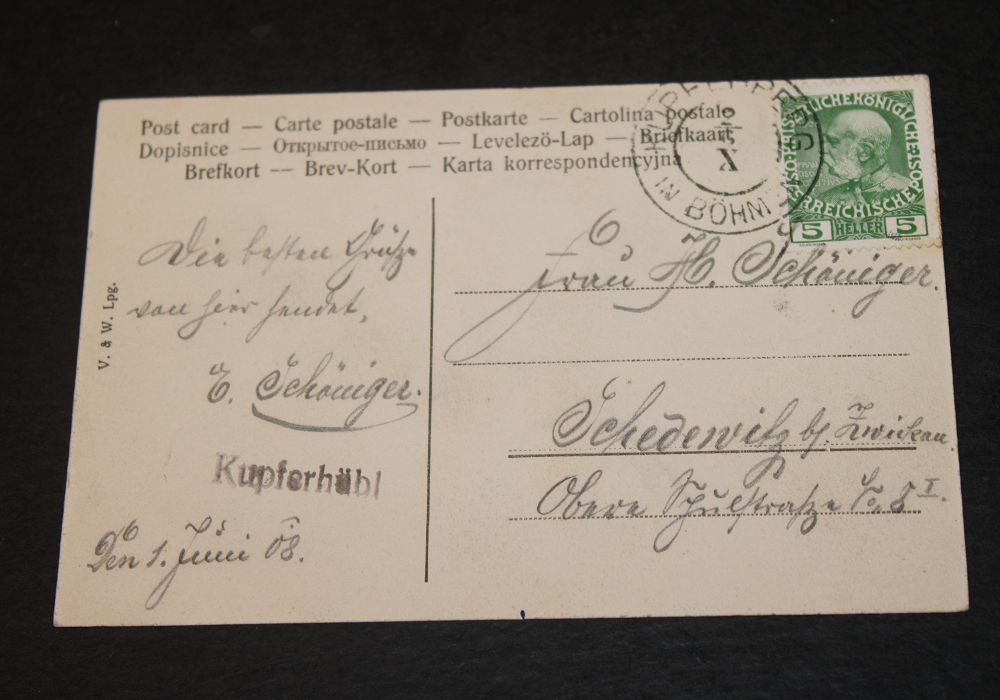 Post card — Carte postale — Postkarte — Cartolina postale
Dopisnice — Открытое-письмо — Levelezö-Lap — Briefkaart
Brefkort — Brev-Kort — Karta korrespondencyjna
X
IN BÖHMEN
ÖSTERREICHISCHE POST
5 HELLER 5
Die besten Grüße
von hier sendet,
E. Schöniger.
Kupferhübl
Den 1. Juni 08.
V. & W. Lpg.
Frau H. Schöniger.
Schedewitz b/ Zwickau
Obere Schulstraße No. 8 I.